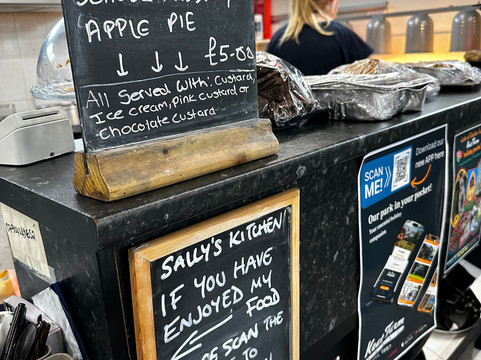 APPLE PIE
↓ ↓ ↓ £5.00
All Served With: Custard
Ice cream, Pink custard or
Chocolate custard
SALLY'S KITCHEN
IF YOU HAVE
ENJOYED MY
FOOD
SCAN THE
TO
SCAN
ME!
Download our
new APP here
Our park in your pocket!
Your essential holiday
companion.